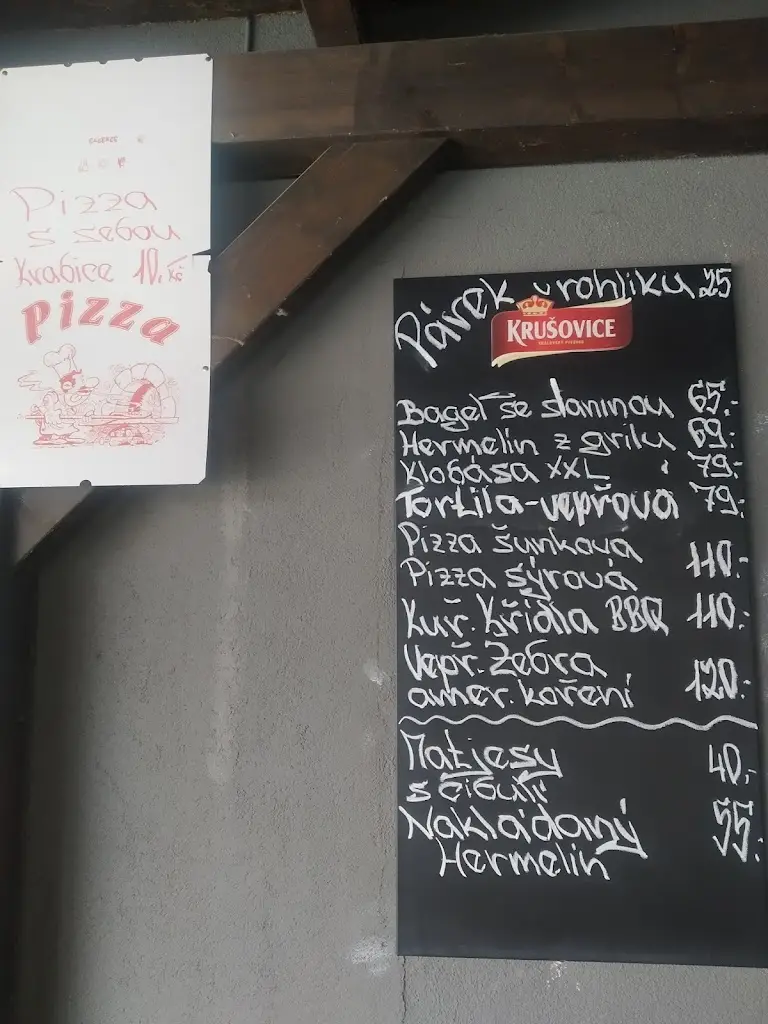 Pizza
s sebou
Krabice 10.Kč
Pizza
Párek v rohlíku 25
KRUŠOVICE
Bagel se slaninou 65.-
Hermelín z grilu 69.-
Klobása XXL 79.-
Tortila-vepřová 79.-
Pizza šunková
Pizza sýrová 110.-
Kuř. Křídla BBQ 110.-
Vepř. Žebra
amer. koření 120.-
Matjesy 40,-
s cibulí
Nakládaný 55.-
Hermelín